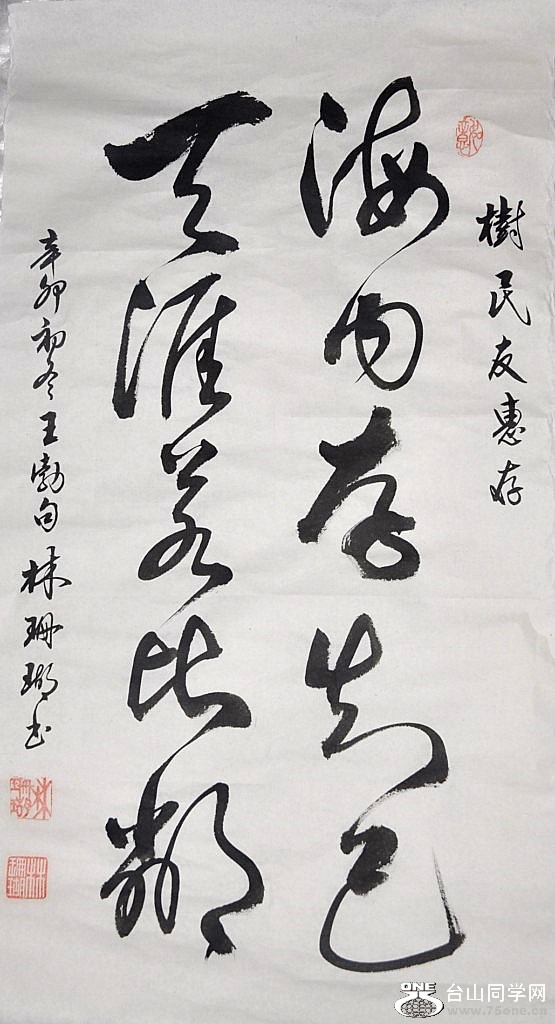 樹民友惠存
海内存知己
天涯若比鄰
辛卯初冬王勃句林珊瑚书
ONE
台山同学网
www.75one.cn